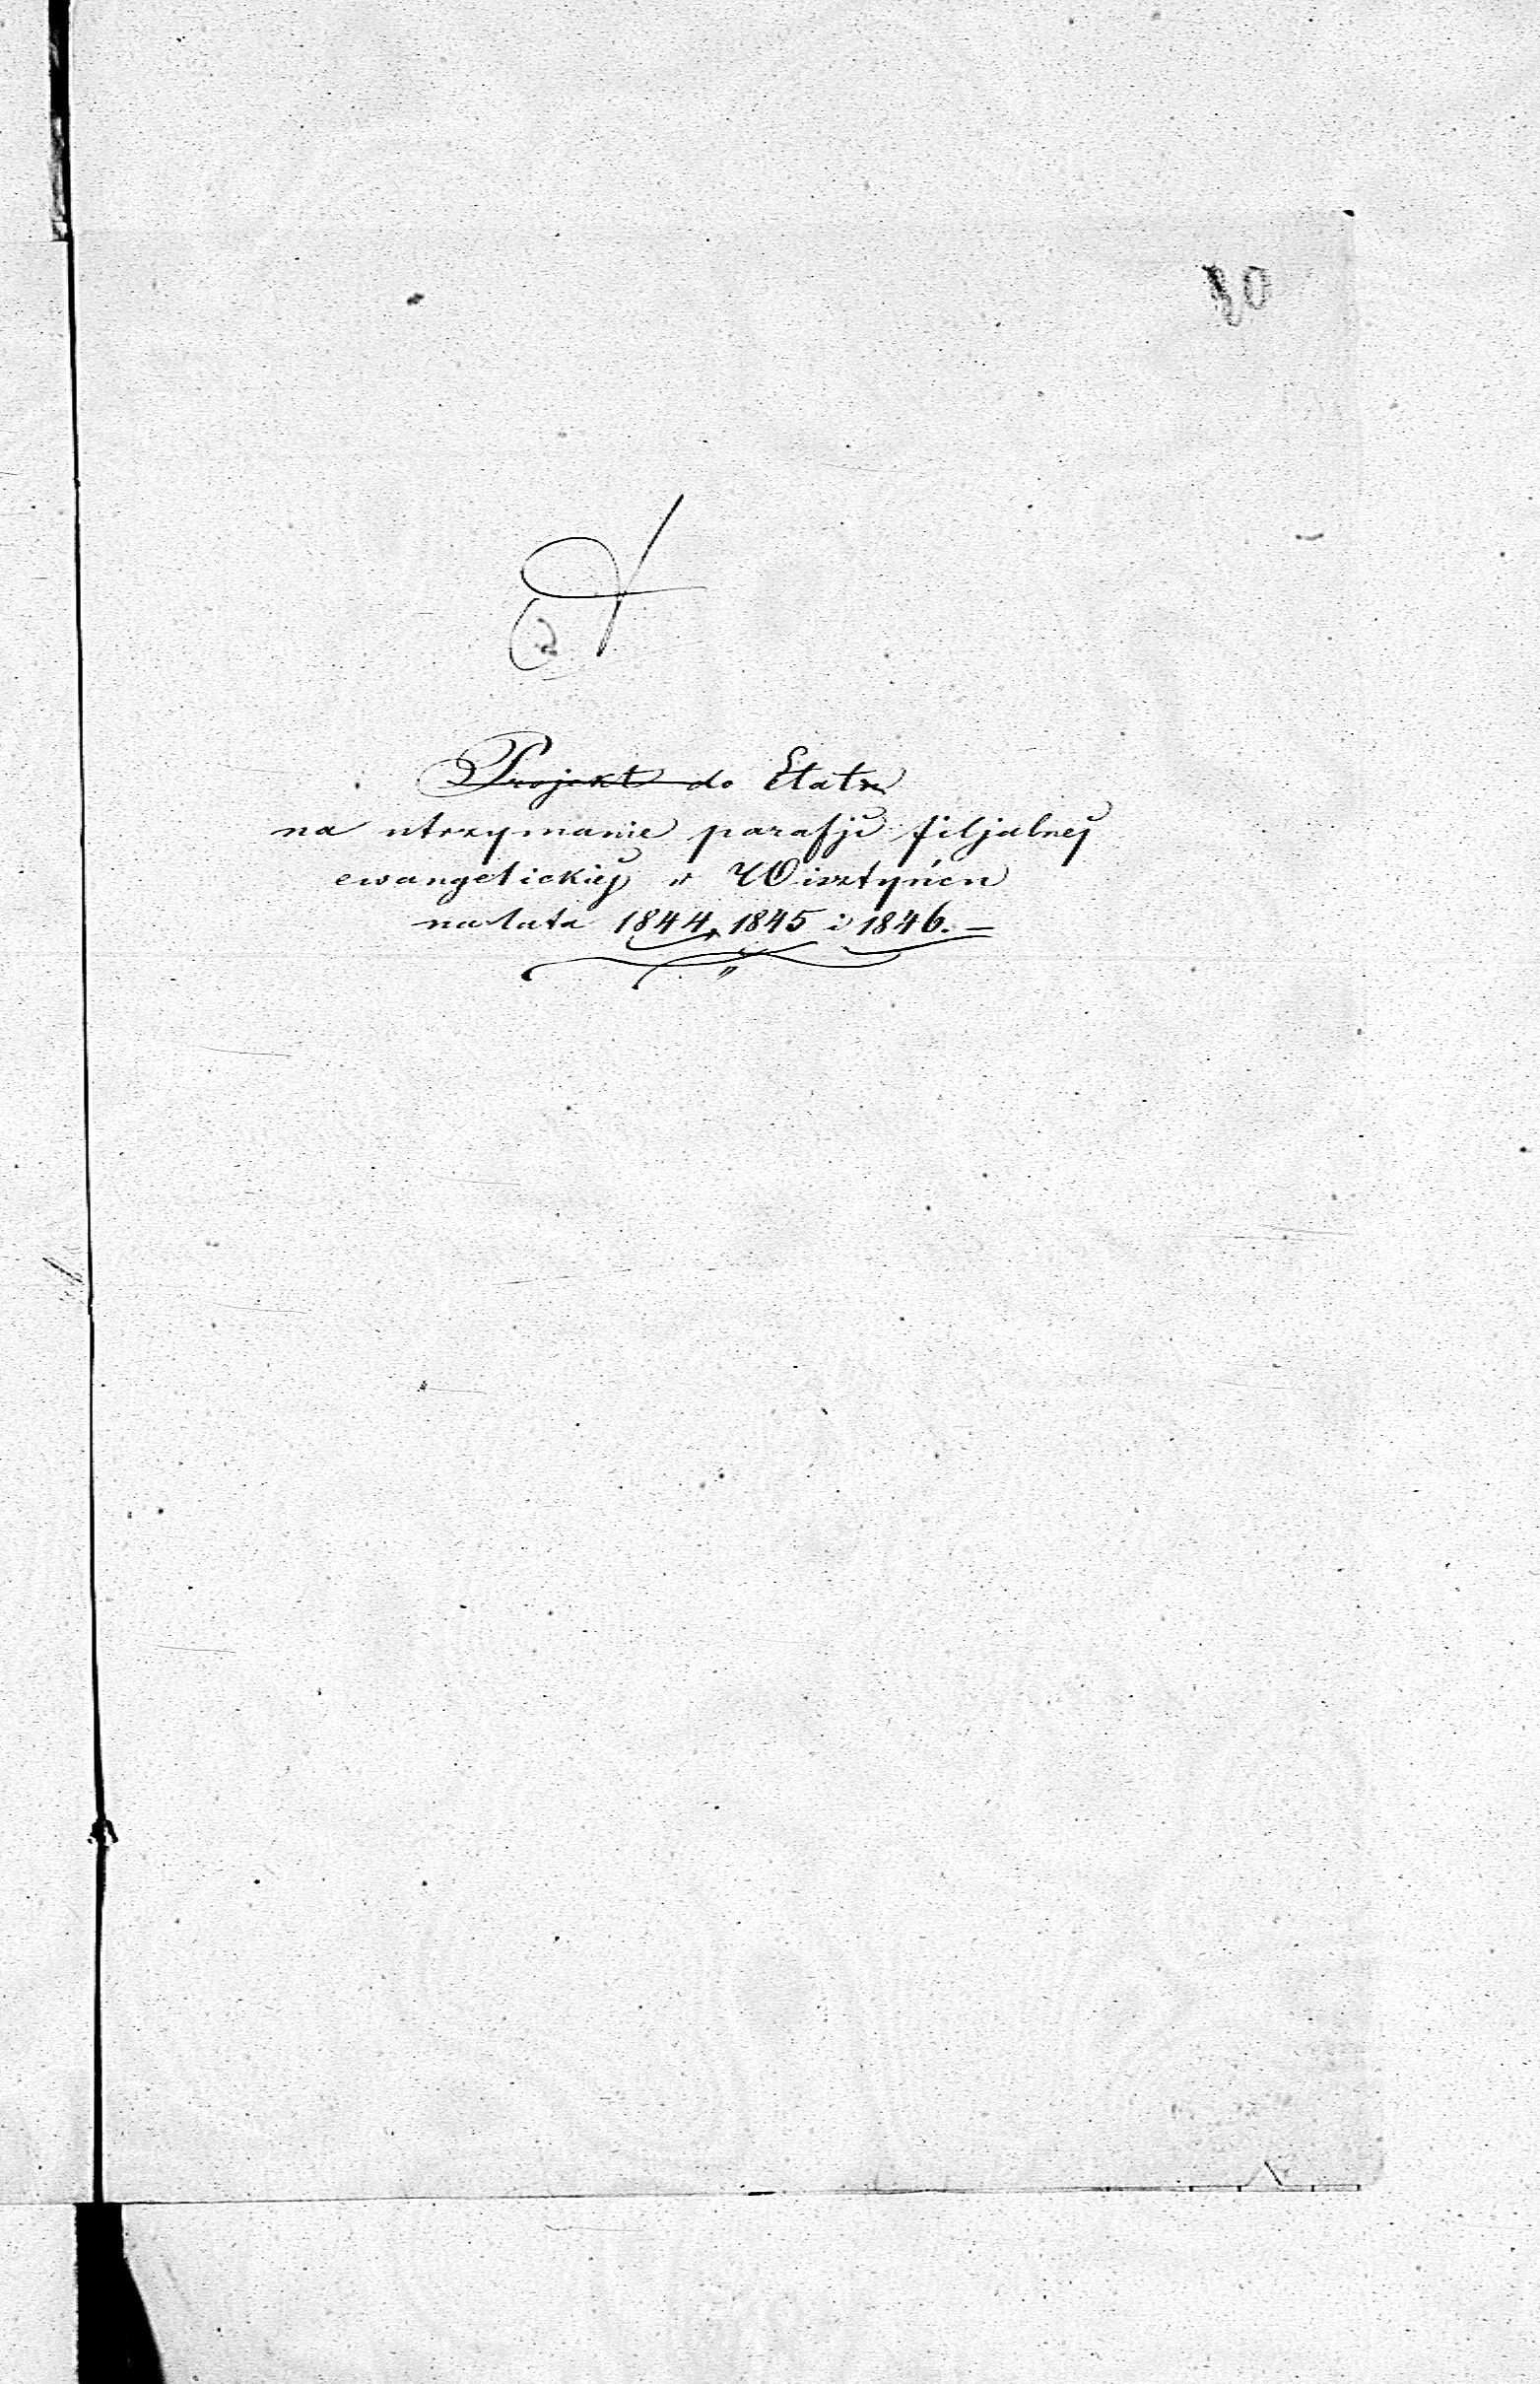 80
Projekt do Etatu
na utrzymanie parafji filjalnej
ewangelickiej w Wisztyńcu
na lata 1844, 1845 i 1846. —